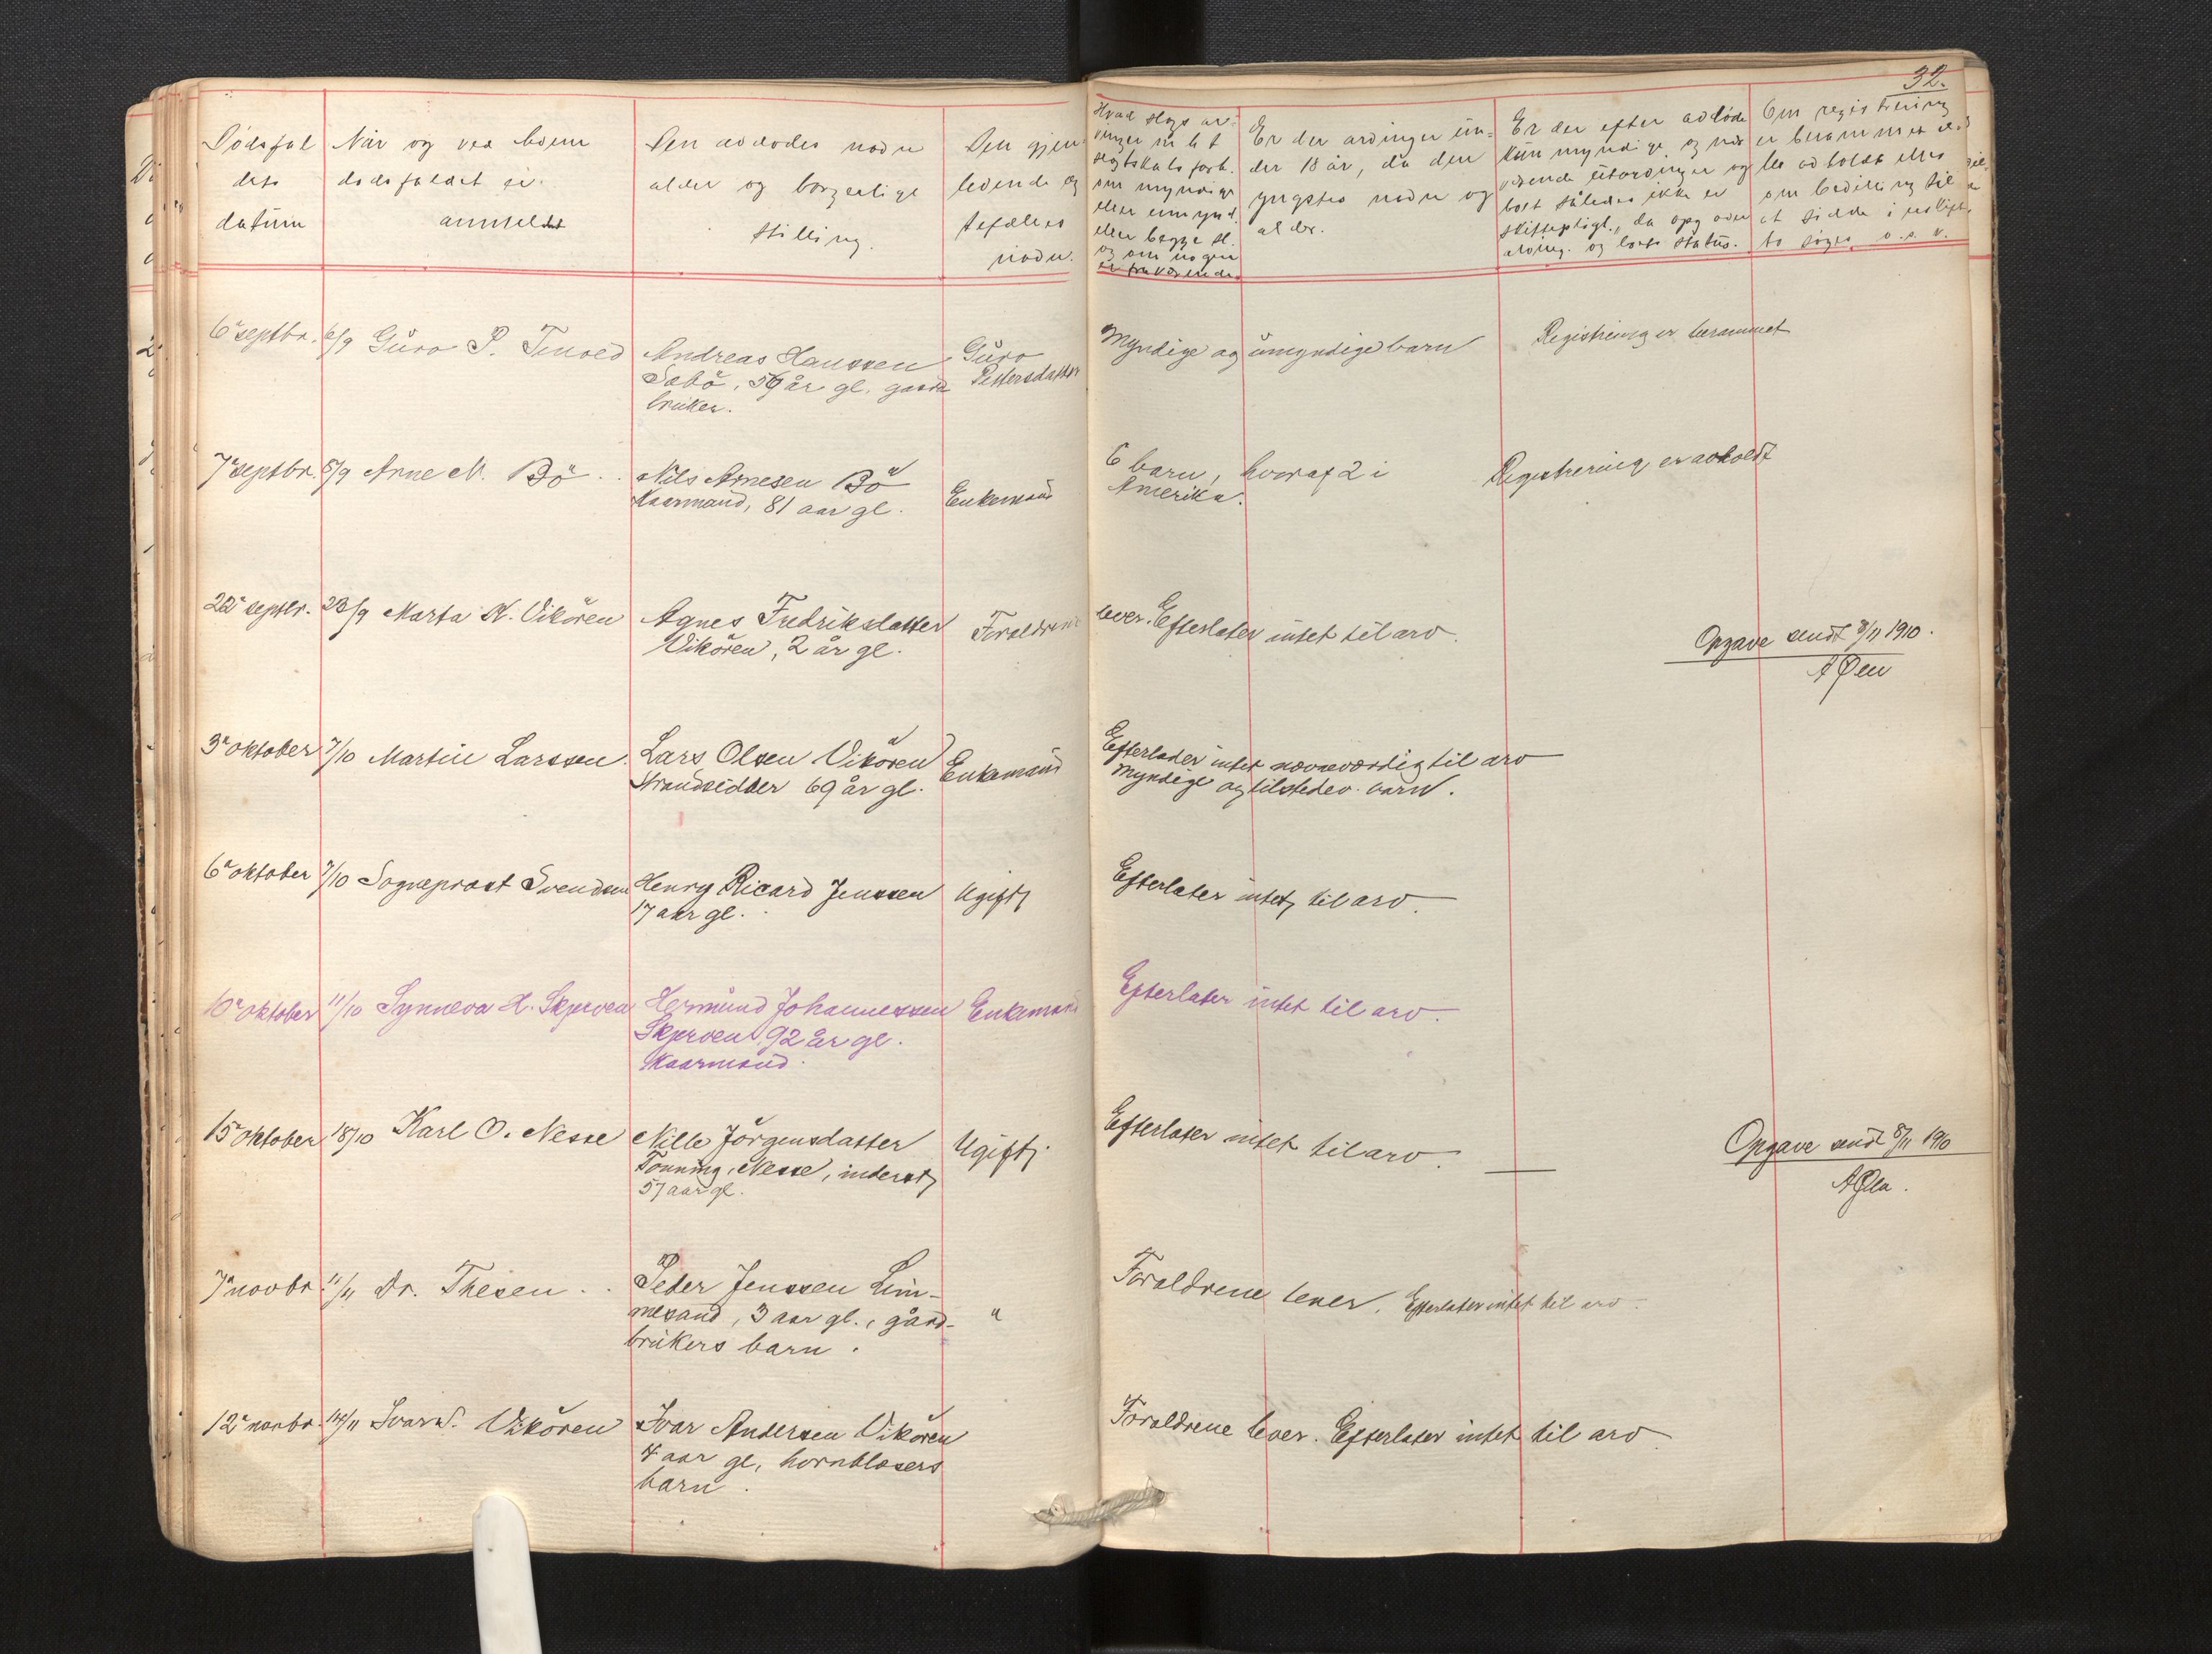 32.
Dødsfal
dets
datum
Når og ved hvem
dødsfaldet er
anmeldt
Den avdødes navn
alder og borgerlige
stilling.
Den gjen-
levende eg
tefælles
navn.
Hvad slags ar-
vinger
slegtskabsforh.
om myndige
eller umynd.
eller begge sl.
og om nogen
er fraværende.
Er der arvinger un-
der 18 år, da den
yngstes navn og
alder.
Er der efter avdøde
kun myndige og nær
værende utarvinger og
boet således ikke er
skiftepligt., da opg over
arving. og boets status.
Om registrering
er berammet el.
ble avholdt eller
om bevilling til
at sidde i uskifte
bo søges o.s.v.
6 septbr. 6/9 Guro P. Tenold
Andreas Hanssen
Sæbö, 59 år gl. gaard
bruker.
Guro
Pettersdatter
Myndige og umyndige barn
Registrering er berammet
7 septbr. 8/9 Arne N. Bö
Nils Arnesen Bö
Kaarmand, 81 aar gl.
Enkemand
6 barn, hvoraf 2 i
Amerika.
Registrering er avholdt
22 septbr. 23/9 Marta N. Vikören
Agnes Fredriksdatter
Vikören, 2 år gl.
Forældrene lever. Efterlater intet til arv.
Opgave sendt 8/11 1910.
AØen
3 oktober 7/10 Martin Larssen.
Lars Olsen Vikören
Strandsidder 69 år gl.
Enkemand
Efterlader intet nævneværdig til arv
Myndige og tilstedev. barn.
6 oktober 7/10 Sogneprost Svendsen
Henry Ricard Jenssen
17 aar gl.
Ugift
Efterlater intet til arv.
10 oktober 11/10 Synneva H. Skjerven
Hermund Johannessen
Skjerven 92 år gl.
Kaarmand.
Enkemand
Efterlater intet til arv.
15 oktober 18/10 Karl O. Nesse
Nille Jörgensdatter
Tönning, Nesse, inderst,
57 aar gl.
Ugift.
Efterlater intet til arv.
Opgave sendt 8/11 1910
AØen.
7 novbr. 11/11 Dr. Thesen
Peder Jenssen Lim-
mesand, 3 aar gl., gård-
brukers barn.
"
Forældrene lever. Efterlater intet til arv.
12 novbr. 14/11 Ivar N. Vikören
Ivar Andersen Vikören
4 aar gl, hornblæsers
barn.
Forældrene lever. Efterlater intet til arv.